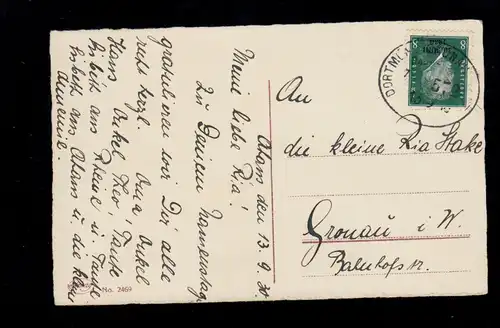 Ahaus den 13.9.30.
Meine liebe Ria!
Zu Deinem Namenstag
gratulieren wir Dir alle
recht herzl. Oma, Onkel
Hans, Onkel Theo, Tante
Lisbeth aus Rheine u. Tante
Lisbeth aus Ahaus u. die kleine
Annemie.
No. 2469
An
die kleine Ria Stake
Gronau i. W.
Bahnhofstr.
8 8
DORTMUND